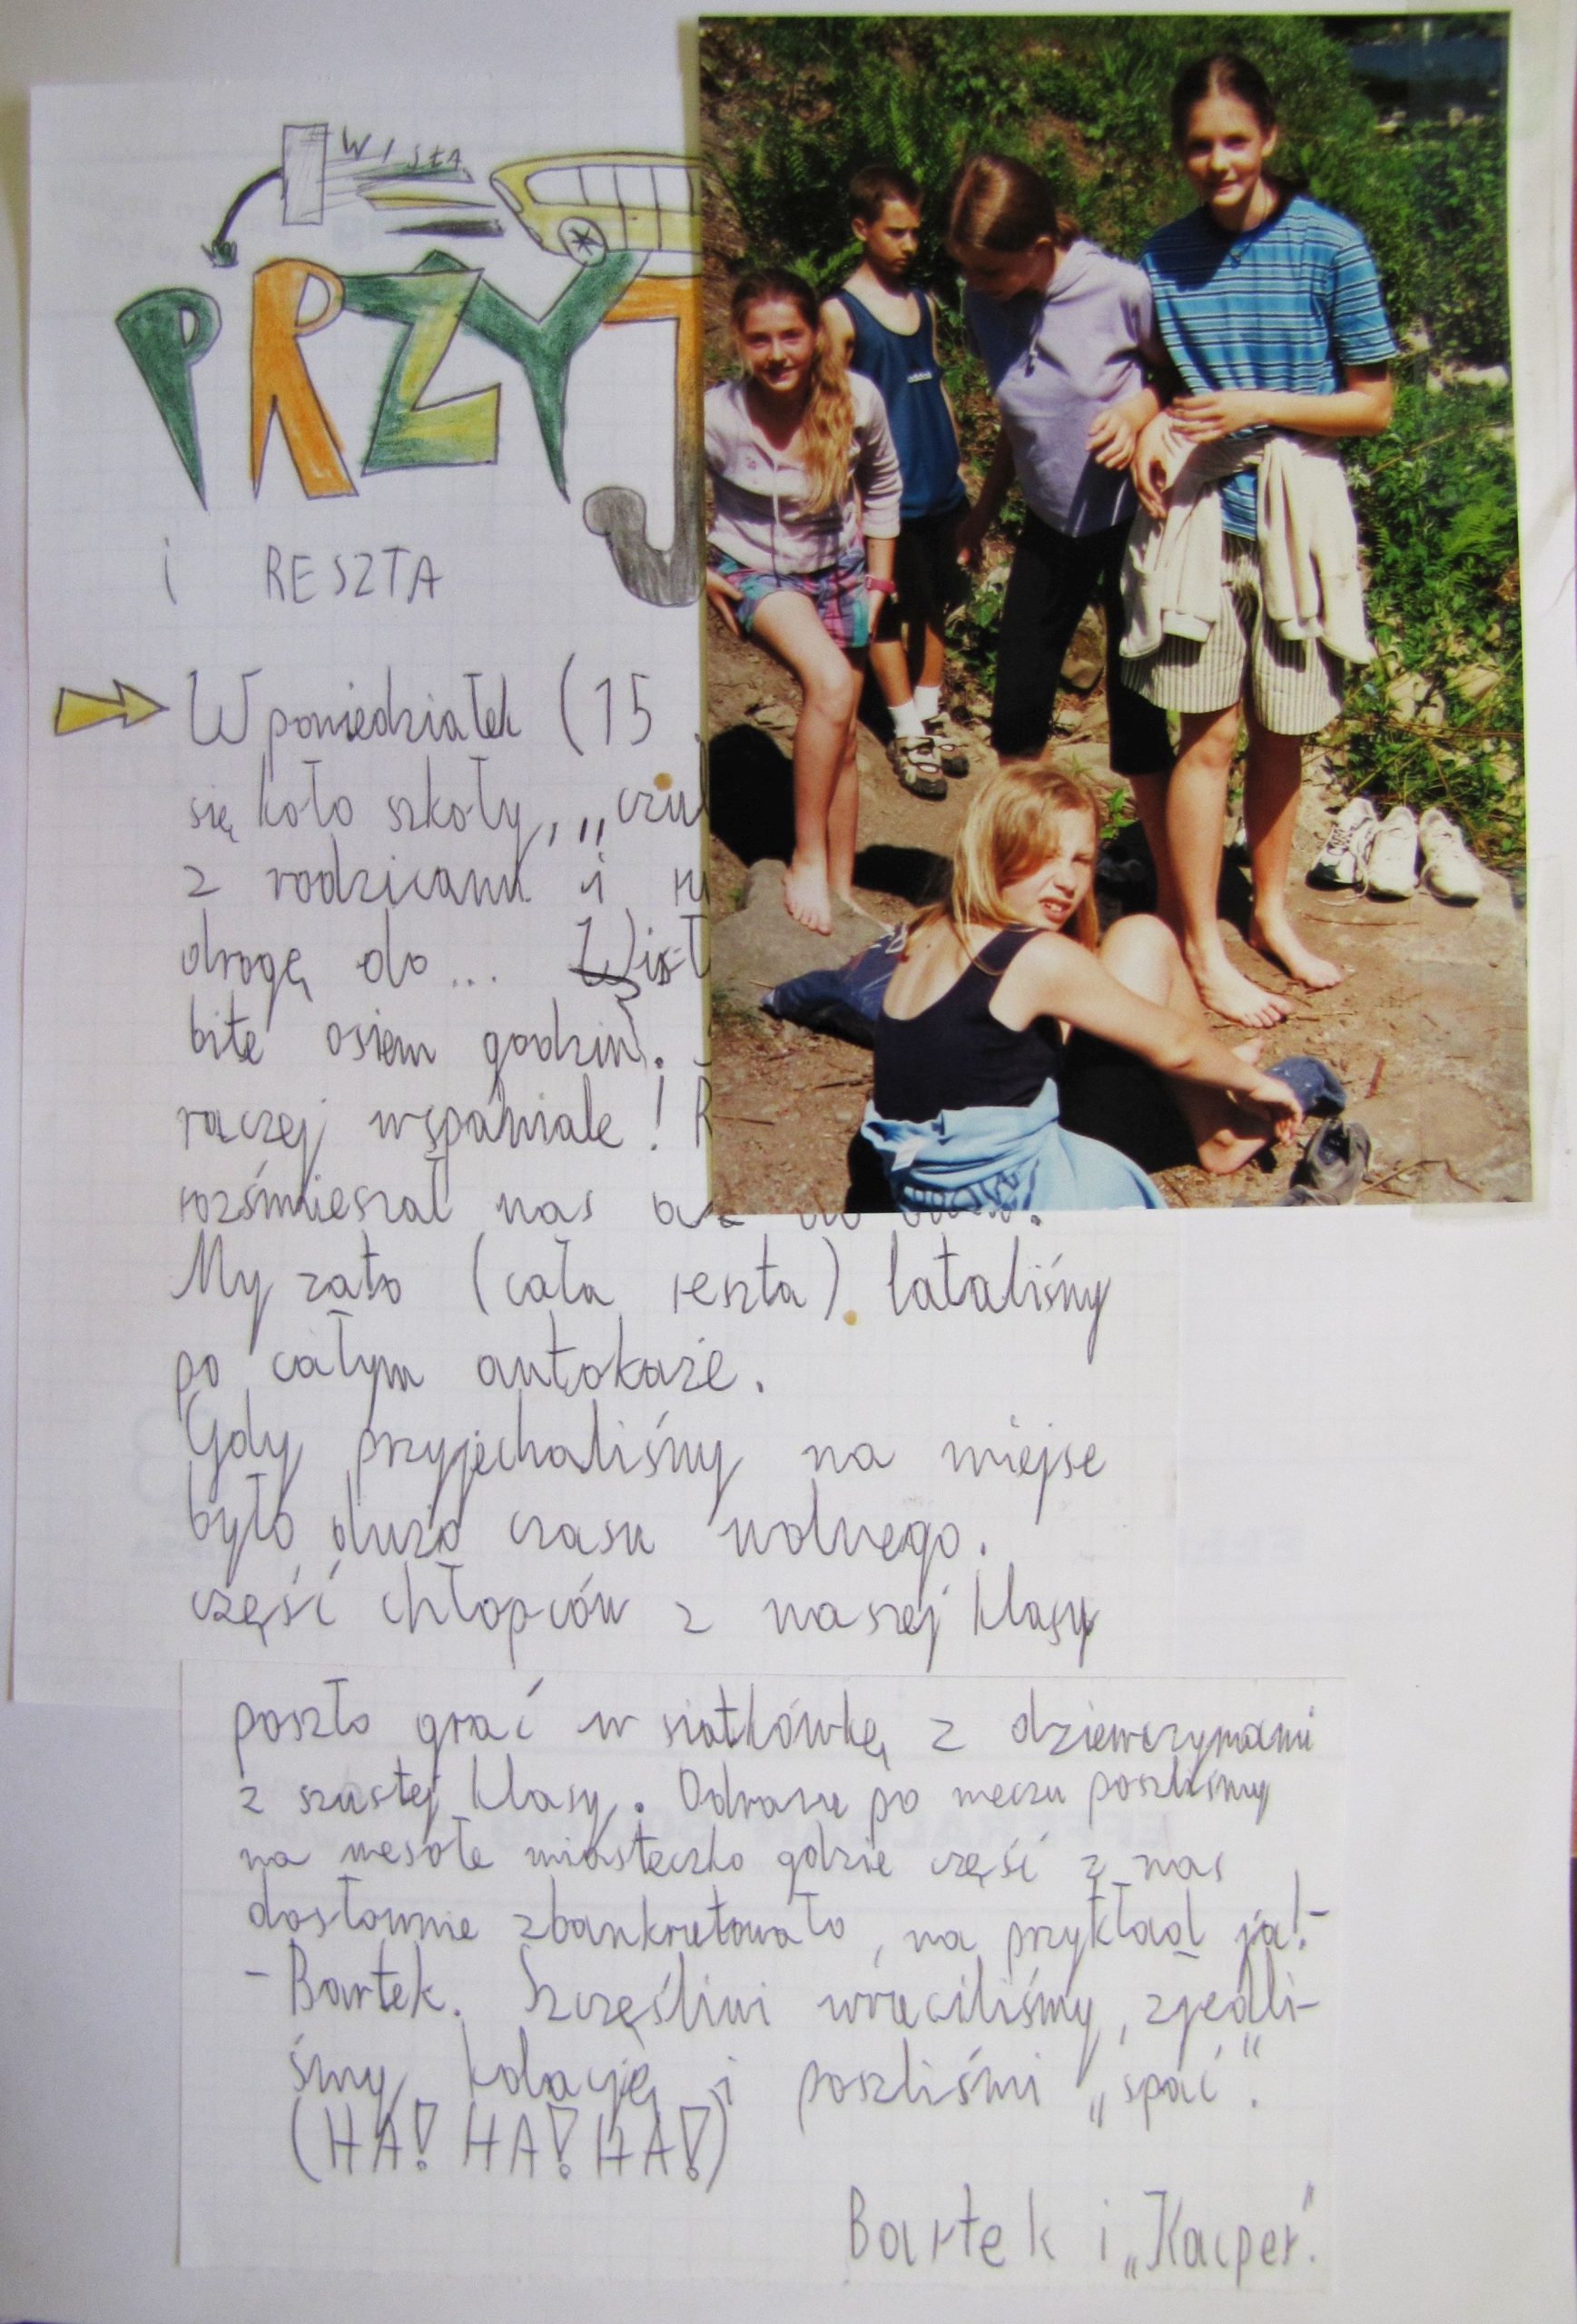 WISŁA
PRZYJ
i RESZTA
W poniedziałek (15
się koło szkoły, „czul
z rodzicami i
drogę do... Wisł
bite osiem godzin.
raczej wspaniale!
rozśmieszał nas
My zato (cała reszta) lataliśmy
po całym autokaże.
Gdy przyjechaliśmy na miejse
było dużo czasu wolnego.
część chłopców z naszej klasy
poszło grać w siatkówkę z dziewczynami
z szustej klasy. Odrazu po meczu poszliśmy
na wesołe miasteczko gdzie część z nas
dosłownie zbankrutowało, na przykład ja!-
- Bartek. Szczęśliwi wruciliśmy, zjedli-
śmy kolację i poszliśmi „spać".
(HA! HA! HA!)
Bartek i „Kacper".